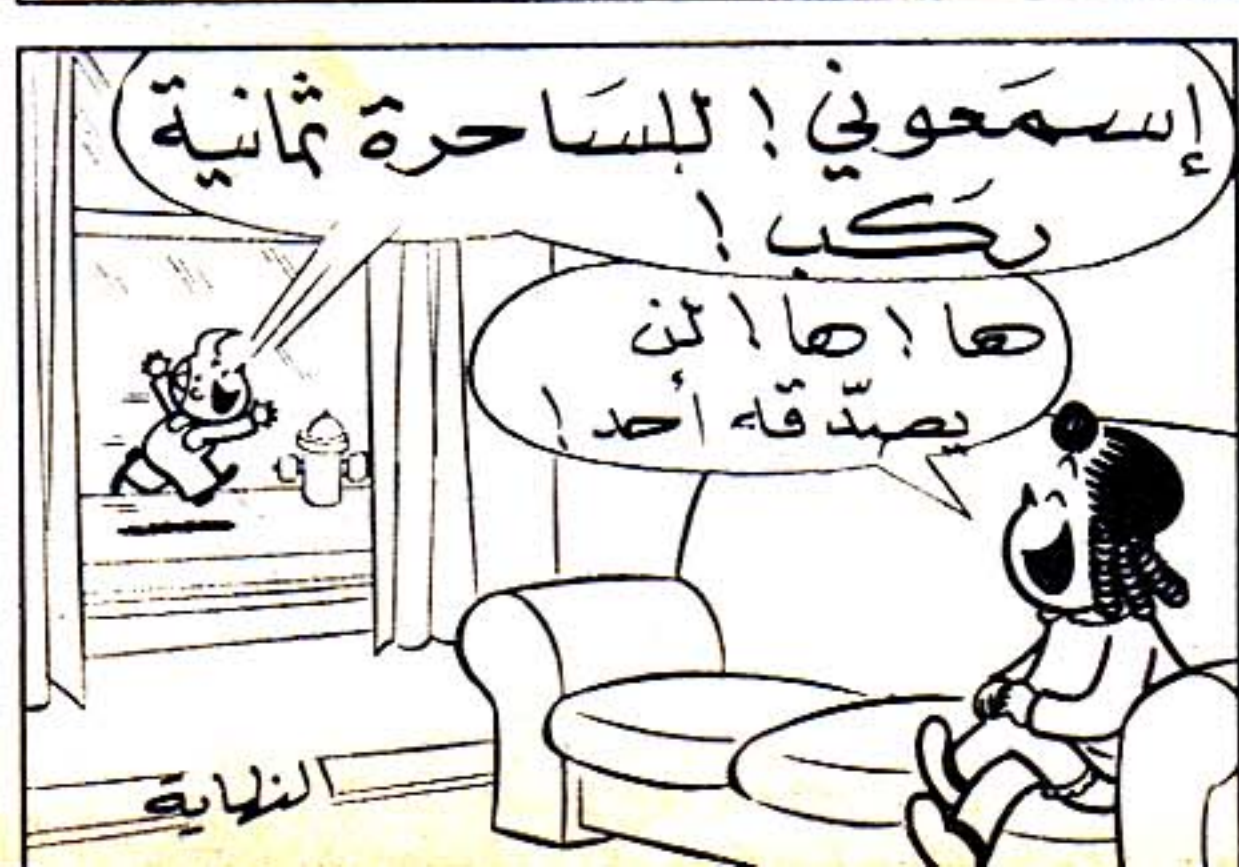 إسمَعوني ! للسَاحرة ثمانية
ركَب !
ها ! ها ! لن
يصدّقه أحد !
النهاية